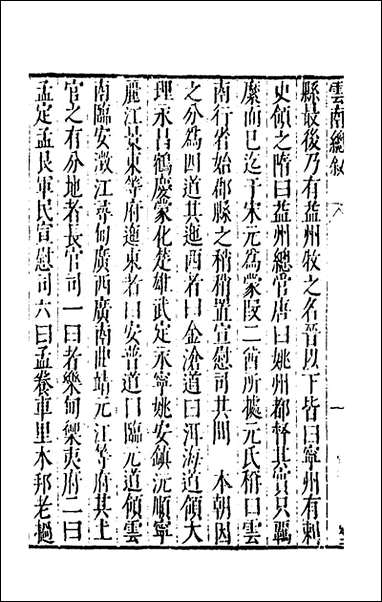 雲南總敘 六 一
縣最後乃有益州牧之名晉以下皆曰寧州有刺
史領之隋曰益州總管唐曰姚州都督其實只羈
縻而已迄于宋元為蒙段二酋所據元氏稍口雲
南行省始郡縣之稍稍置宣慰司其間 本朝因
之分為四道其迤西者曰金滄道曰洱海道領大
理永昌鶴慶蒙化楚雄武定永寧姚安鎮沅順寧
麗江景東等府迤東者曰安普道曰臨元道領雲
南臨安澂江尋甸廣西廣南曲靖元江等府其土
官之有分地者長官司一曰者樂甸禦夷府二曰
孟定孟艮軍民宣慰司六曰孟養車里木邦老撾